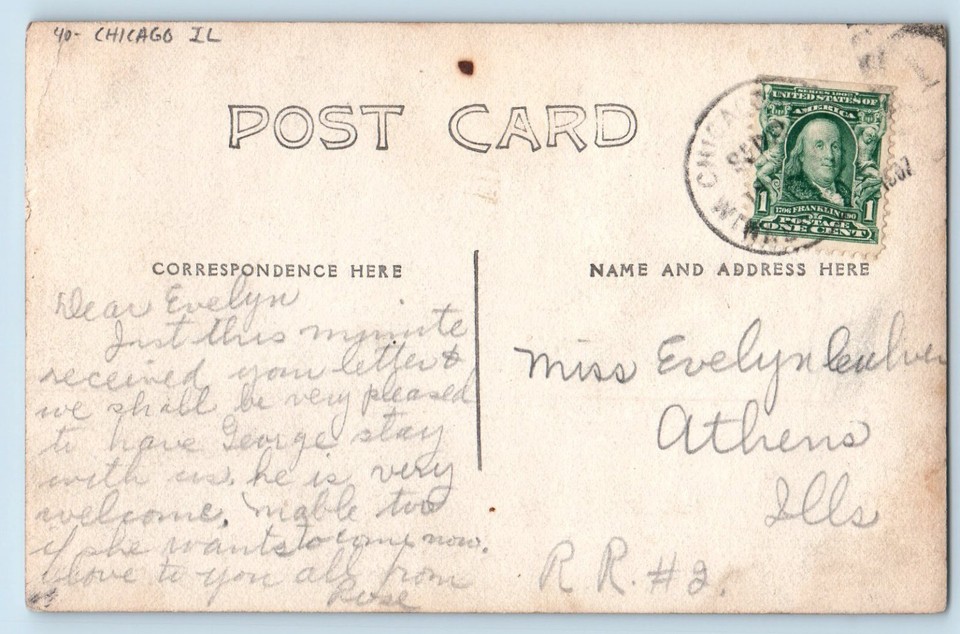 40- CHICAGO IL
POST CARD
CHICAGO
SEP
1907
SERIES 1902
UNITED STATES OF
AMERICA
1 1
1706 FRANKLIN 1790
POSTAGE
ONE CENT
CORRESPONDENCE HERE
NAME AND ADDRESS HERE
Dear Evelyn
Just this mynute
received your letter &
we shall be very pleased
to have George stay
with us. he is very
welcome. mable too
if she wants to come now.
love to you all from
Rose
Miss Evelyn Culver
Athens
Ills
R R. #2.